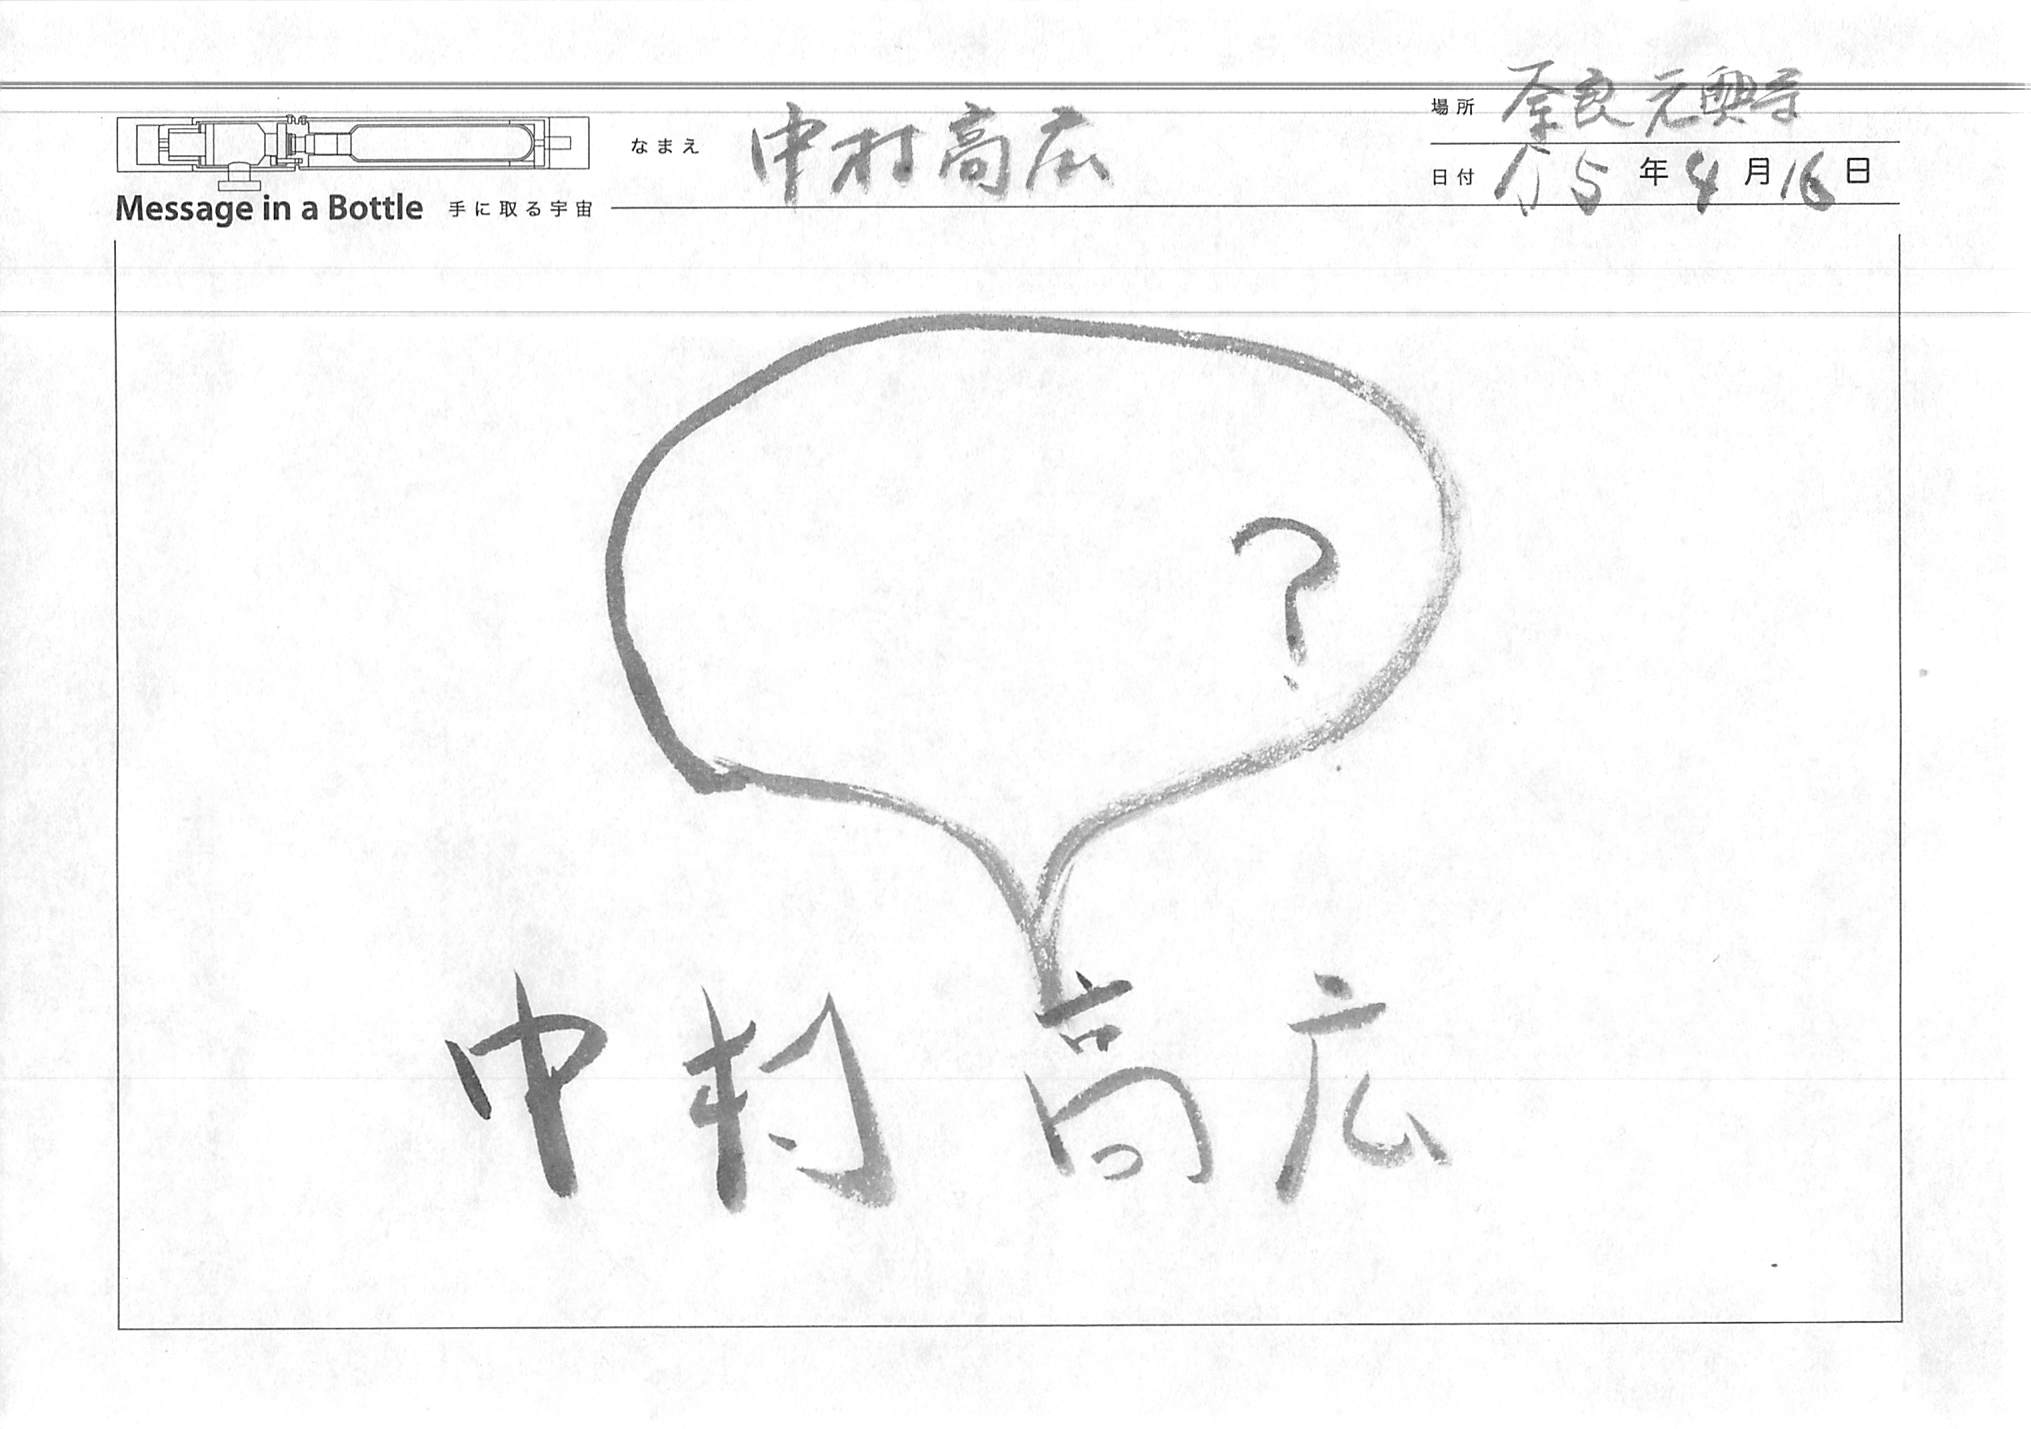 場所 奈良 元興寺
なまえ 中村高広
日付 5年4月16日
Message in a Bottle 手に取る宇宙
?
中村 高広